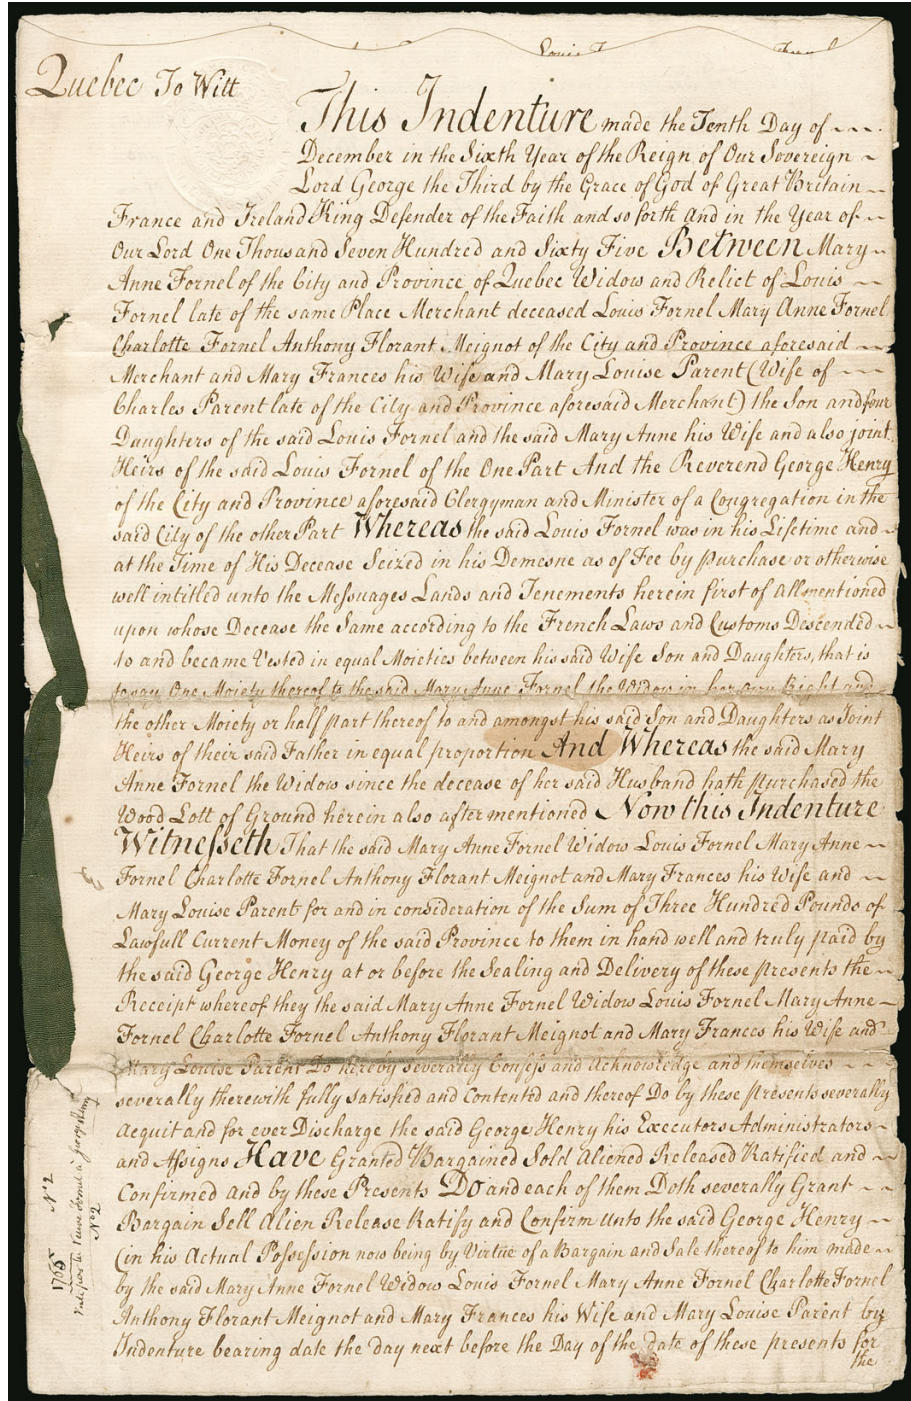 Quebec To Witt
This Indenture made the Tenth Day of
December in the Sixth Year of the Reign of Our Sovereign
Lord George the Third by the Grace of God of Great Britain
France and Ireland King Defender of the Faith and so forth and in the Year of
Our Lord One Thousand Seven Hundred and Sixty Five Between Mary
Anne Fornel of the City and Province of Quebec Widow and Relict of Louis
Fornel late of the same Place Merchant deceased Louis Fornel Mary Anne Fornel
Charlotte Fornel Anthony Florant Meignot of the City and Province aforesaid
Merchant and Mary Frances his Wife and Mary Louise Parent (Wife of
Charles Parent late of the City and Province aforesaid Merchant) the Son and four
Daughters of the said Louis Fornel and the said Mary Anne his Wife and also joint
Heirs of the said Louis Fornel of the One Part And the Reverend George Henry
of the City and Province aforesaid Clergyman and Minister of a Congregation in the
said City of the other Part Whereas the said Louis Fornel was in his Lifetime and
at the Time of His Decease Seized in his Demesne as of Fee by purchase or otherwise
well intitled unto the Messuages Lands and Tenements herein first of all mentioned
upon whose Decease the Same according to the French Laws and Customs Descended
to and became Vested in equal Moieties between his said Wife Son and Daughters, that is
to say One Moiety thereof to the said Mary Anne Fornel the Widow in her own Right and
the other Moiety or half part thereof to and amongst his said Son and Daughters as Joint
Heirs of their said Father in equal proportion And Whereas the said Mary
Anne Fornel the Widow since the decease of her said Husband hath purchased the
Wood Lott of Ground herein also after mentioned Now this Indenture
Witnesseth That the said Mary Anne Fornel Widow Louis Fornel Mary Anne
Fornel Charlotte Fornel Anthony Florant Meignot and Mary Frances his Wife and
Mary Louise Parent for and in consideration of the Sum of Three Hundred Pounds of
Lawfull Current Money of the said Province to them in hand well and truly paid by
the said George Henry at or before the Sealing and Delivery of these presents the
Receipt whereof they the said Mary Anne Fornel Widow Louis Fornel Mary Anne
Fornel Charlotte Fornel Anthony Florant Meignot and Mary Frances his Wife and
Mary Louise Parent Do hereby severally Confess and Acknowledge and themselves
severally therewith fully satisfied and Contented and thereof Do by these presents severally
acquit and for ever Discharge the said George Henry his Executors Administrators
and Assigns Have Granted Bargained Sold Aliened Released Ratified and
Confirmed and by these Presents Do and each of them Doth severally Grant
Bargain Sell Alien Release Ratify and Confirm unto the said George Henry
(in his Actual Possession now being by Virtue of a Bargain and Sale thereof to him made
by the said Mary Anne Fornel Widow Louis Fornel Mary Anne Fornel Charlotte Fornel
Anthony Florant Meignot and Mary Frances his Wife and Mary Louise Parent by
Indenture bearing date the day next before the Day of the date of these presents for
the
1765 No 2
par la Veuve Fornel à
No 2